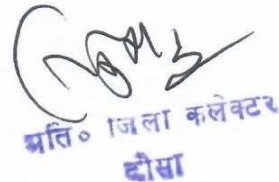 अति० जिला कलेक्टर
दौसा